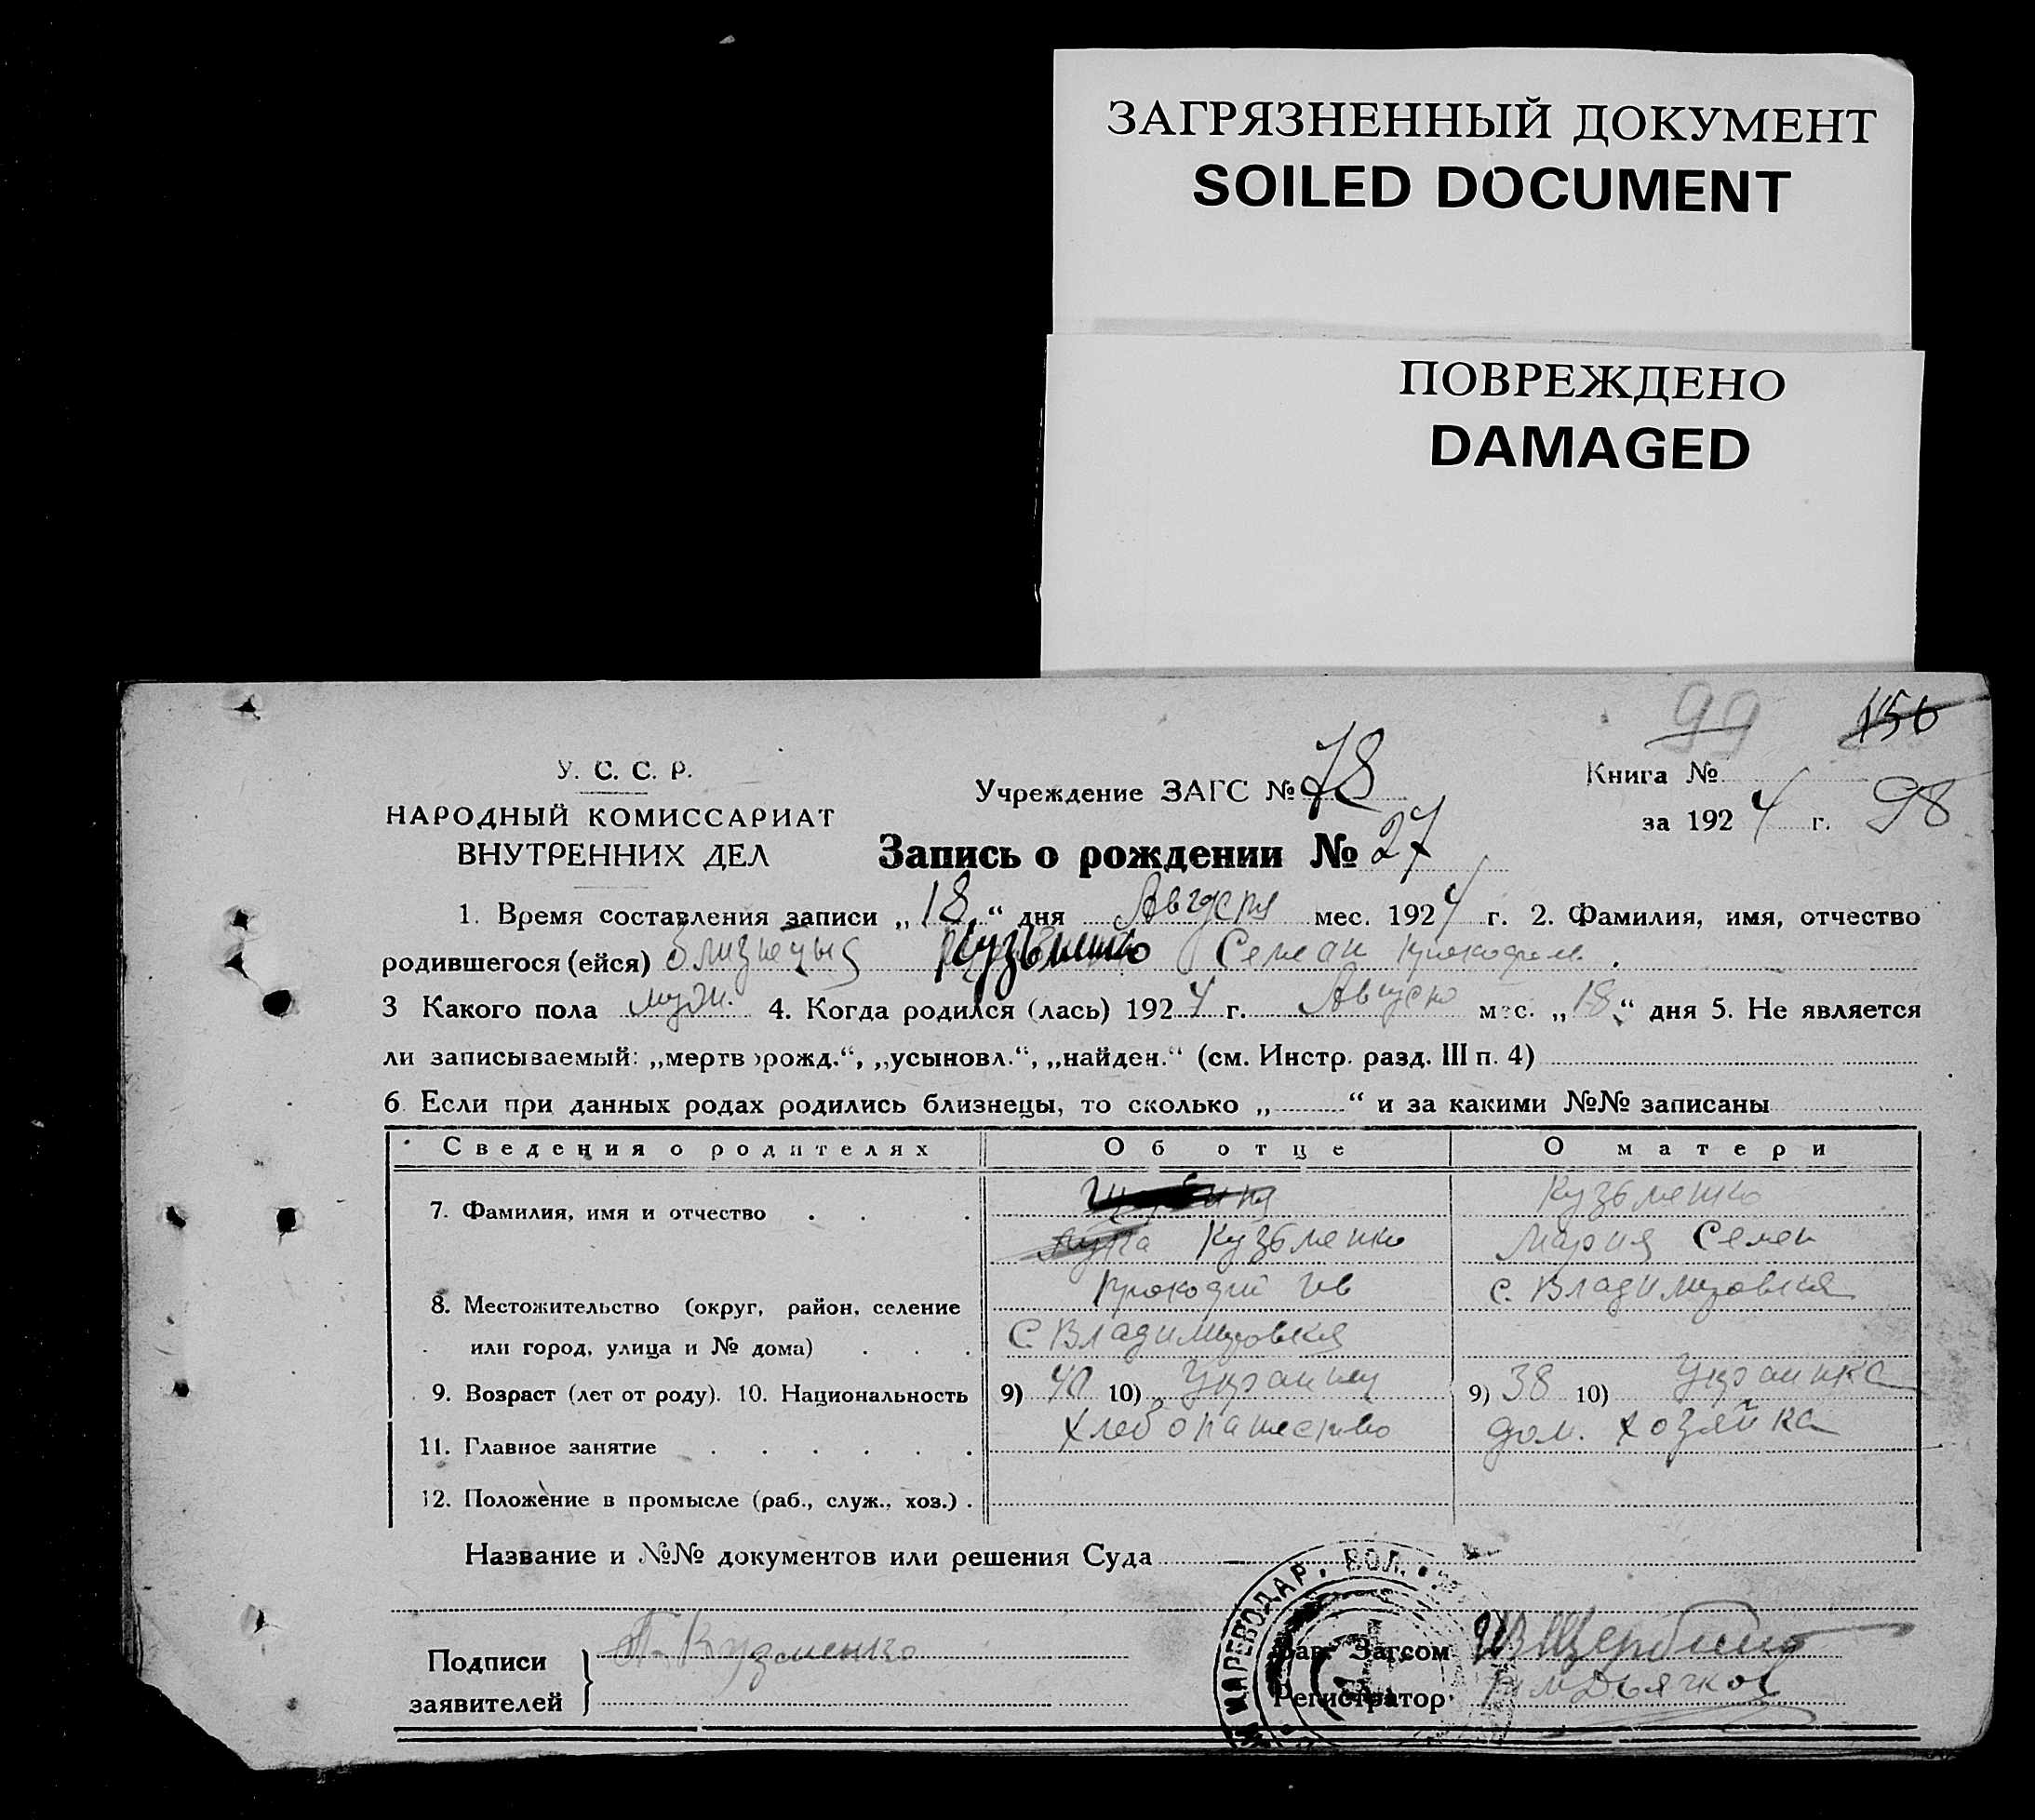 ЗАГРЯЗНЕННЫЙ ДОКУМЕНТ
SOILED DOCUMENT
ПОВРЕЖДЕНО
DAMAGED
99 156
У. С. С. Р.
НАРОДНЫЙ КОМИССАРИАТ
ВНУТРЕННИХ ДЕЛ
Учреждение ЗАГС № 78
Книга №
за 1924 г. 98
Запись о рождении № 27
1. Время составления записи „18“ дня Августа мес. 1924 г. 2. Фамилия, имя, отчество
родившегося (ейся) Кузьменко Семен Прокофи.
3 Какого пола муж. 4. Когда родился (лась) 1924 г. Август мес. „18“ дня 5. Не является
ли записываемый: „мертворожд.“, „усыновл.“, „найден.“ (см. Инстр. разд. III п. 4)
6 Если при данных родах родились близнецы, то сколько „ “ и за какими №№ записаны
Сведения о родителях Об отце О матери
7. Фамилия, имя и отчество Кузьменко
Кузьменко Мария Семен
8. Местожительство (округ, район, селение Прокофий с. Владимировка
или город, улица и № дома) с. Владимировка
9. Возраст (лет от роду). 10. Национальность 9) 40 10) Украинец 9) 38 10) Украинка
11. Главное занятие хлебопашество дом. хозяйка
12. Положение в промысле (раб., служ., хоз.)
Название и №№ документов или решения Суда
МАРЕВОДАР. ВОЛ.
Подписи
заявителей
П. Кузменко
Зав. Загсом Щербина
Регистратор Дьячков